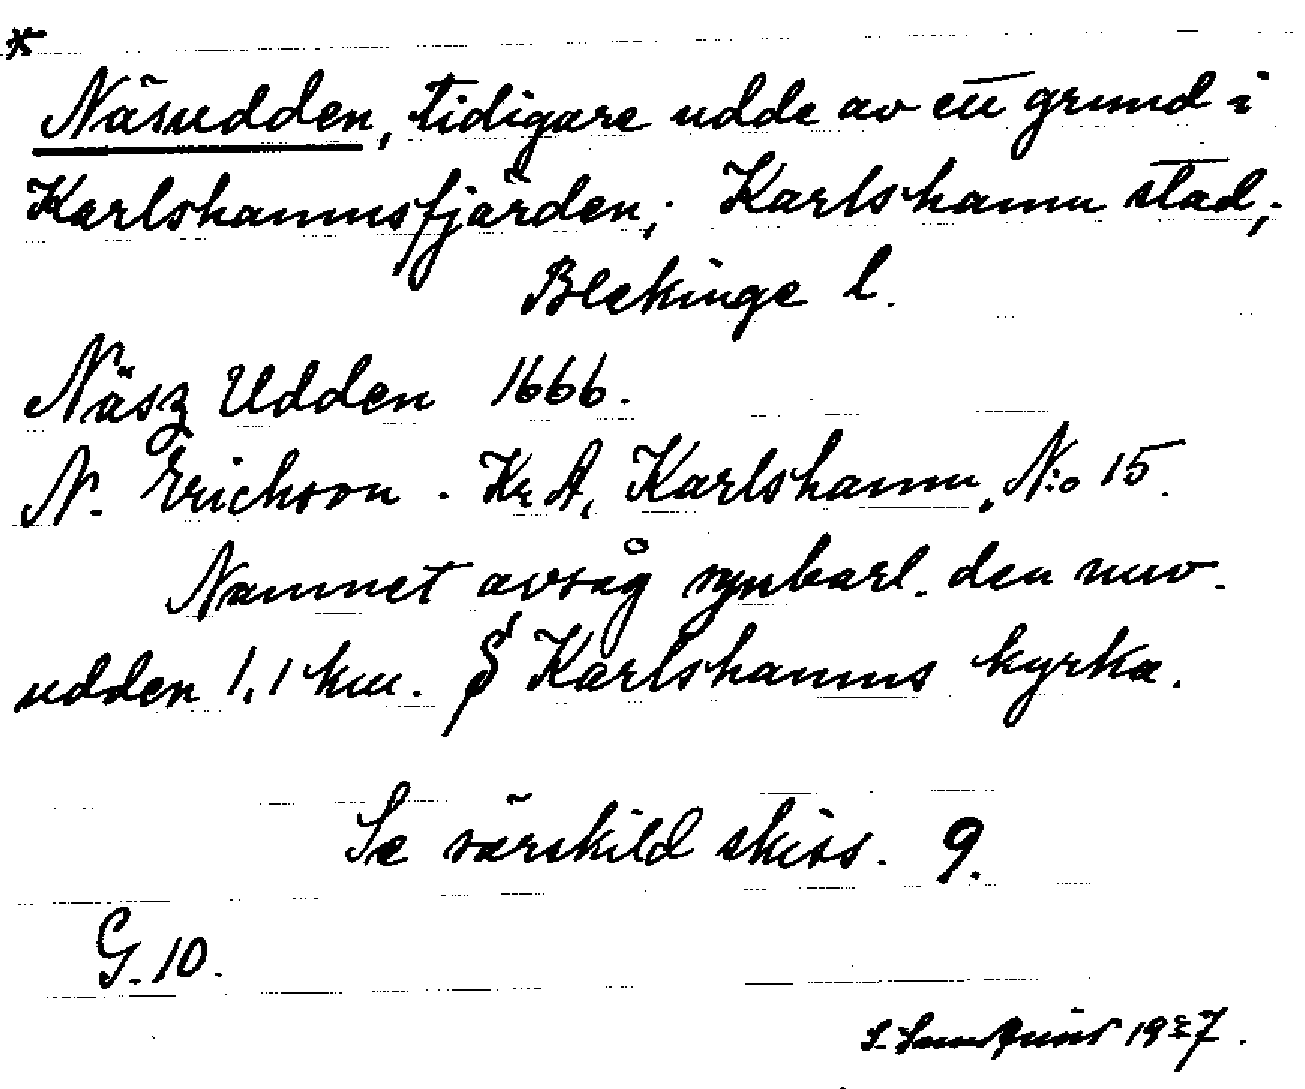 *
Näsudden, tidigare udde av ett grund i
Karlshamnsfjärden; Karlshamn stad;
Blekinge l.
Näsz Udden 1666.
N. Erickson. Kr A, Karlshamn, N:o 15.
Namnet avsåg synbarl. den nuv.
udden 1,1 km. S Karlshamns kyrka.
Se särskild skiss. 9.
G. 10.
S. 1927.